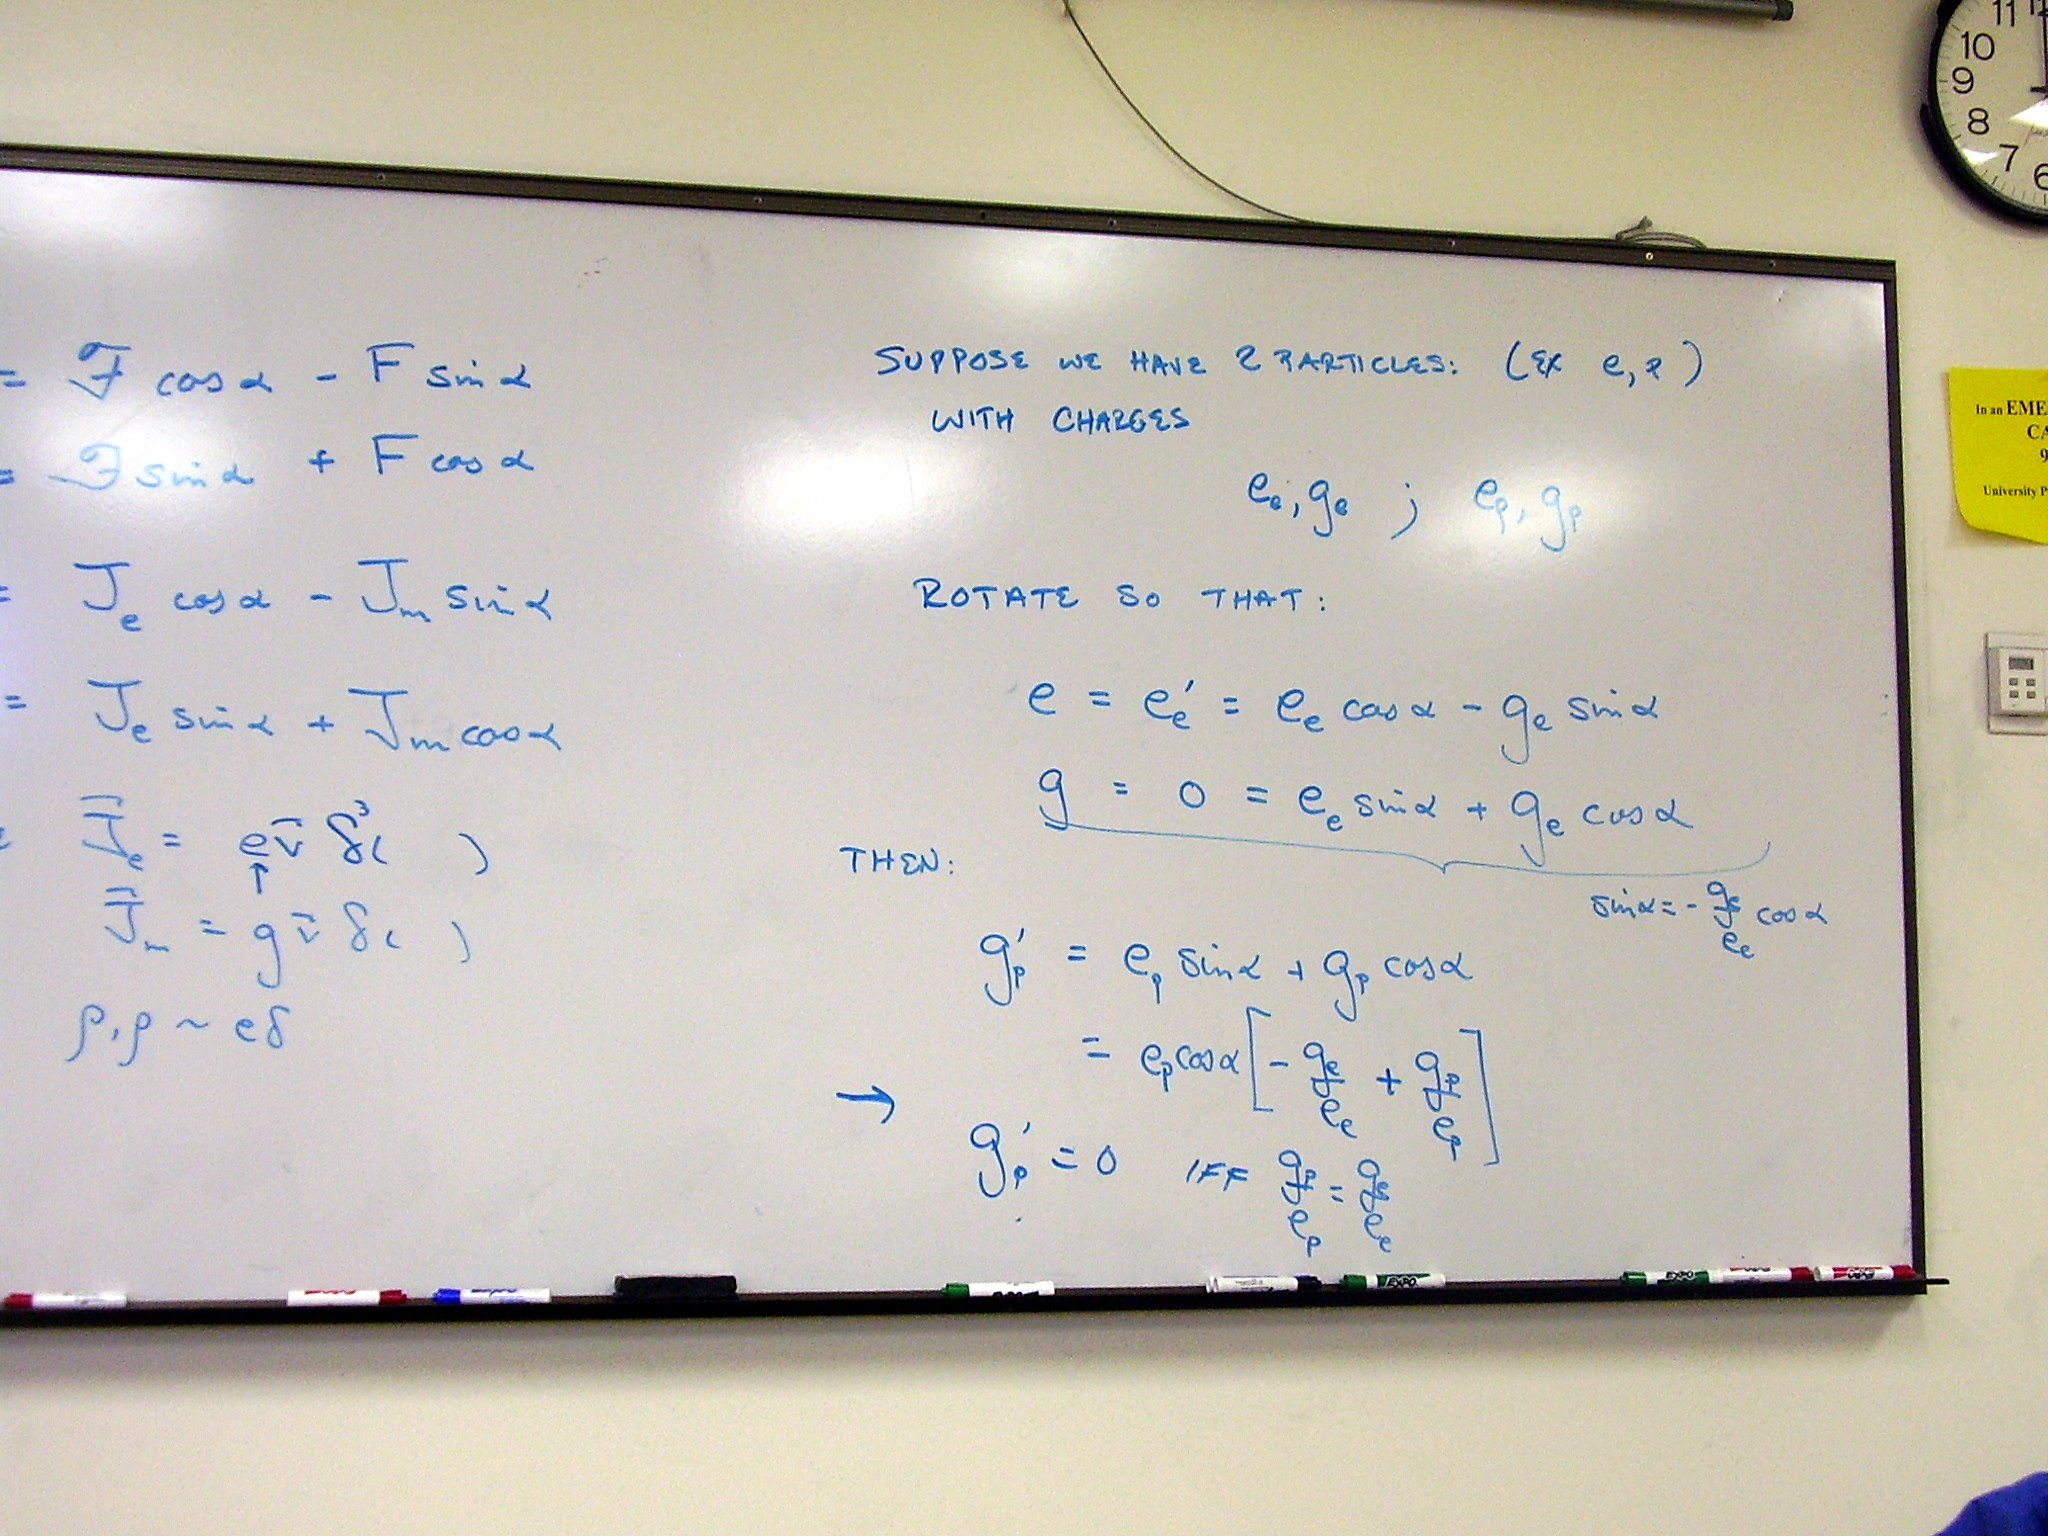 = ℱ cos α - F sin α
= ℱ sin α + F cos α
= J_e cos α - J_m sin α
= J_e sin α + J_m cos α
= J⃗_e = e v⃗ δ³( )
↑
J⃗_m = g v⃗ δ( )
ρ, ρ ~ eδ
SUPPOSE WE HAVE 2 PARTICLES: (EX e, p)
WITH CHARGES
e_e, g_e ; e_p, g_p
ROTATE SO THAT:
e = e_e' = e_e cos α - g_e sin α
g = 0 = e_e sin α + g_e cos α
sin α = - g_e/e_e cos α
THEN:
g_p' = e_p sin α + g_p cos α
= e_p cos α [ - g_e/e_e + g_p/e_p ]
→
g_p' = 0 IFF g_p/e_p = g_e/e_e
11
10
9
8
7
6
In an EME
CA
9
University P
EXPO
EXPO